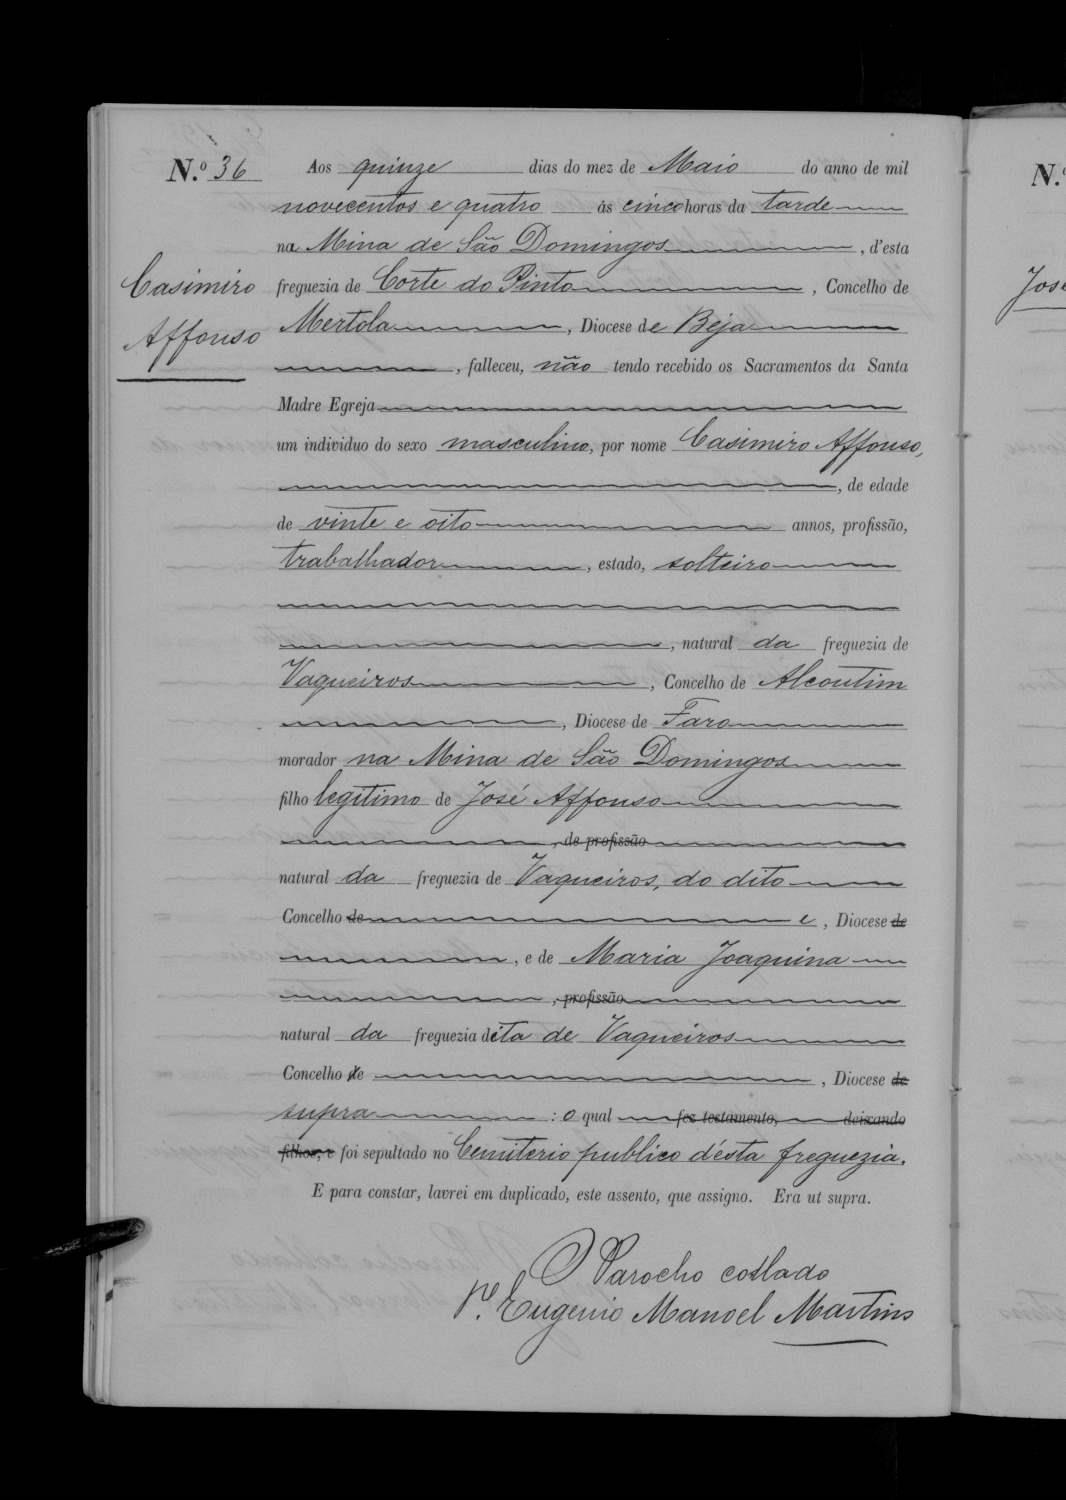 N.º 36
Casimiro
Affonso
Aos quinze dias do mez de Maio do anno de mil
novecentos e quatro ás cinco horas da tarde
na Mina de São Domingos, d'esta
freguezia de Corte do Pinto, Concelho de
Mertola, Diocese de Beja
, falleceu, não tendo recebido os Sacramentos da Santa
Madre Egreja
um individuo do sexo masculino, por nome Casimiro Affonso,
, de edade
de vinte e oito annos, profissão,
trabalhador, estado, solteiro
, natural da freguezia de
Vaqueiros, Concelho de Alcoutim
, Diocese de Faro
morador na Mina de São Domingos
filho legitimo de José Affonso
, de profissão
natural da freguezia de Vaqueiros, do dito
Concelho de e, Diocese de
, e de Maria Joaquina
, profissão
natural da freguezia dita de Vaqueiros
Concelho de , Diocese de
supra : o qual fez testamento, deixando
filhos, e foi sepultado no Cemiterio publico d'ésta freguezia.
E para constar, lavrei em duplicado, este assento, que assigno. Era ut supra.
O Parocho collado
P.e Eugenio Manoel Martins
N.º
José